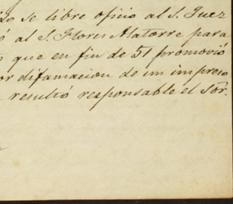 do se libre oficio al S. Juez
ó al S. Flores Alatorre para
que en fin de 51 promovió
or difamacion de un impreso
resultó responsable el Sor.